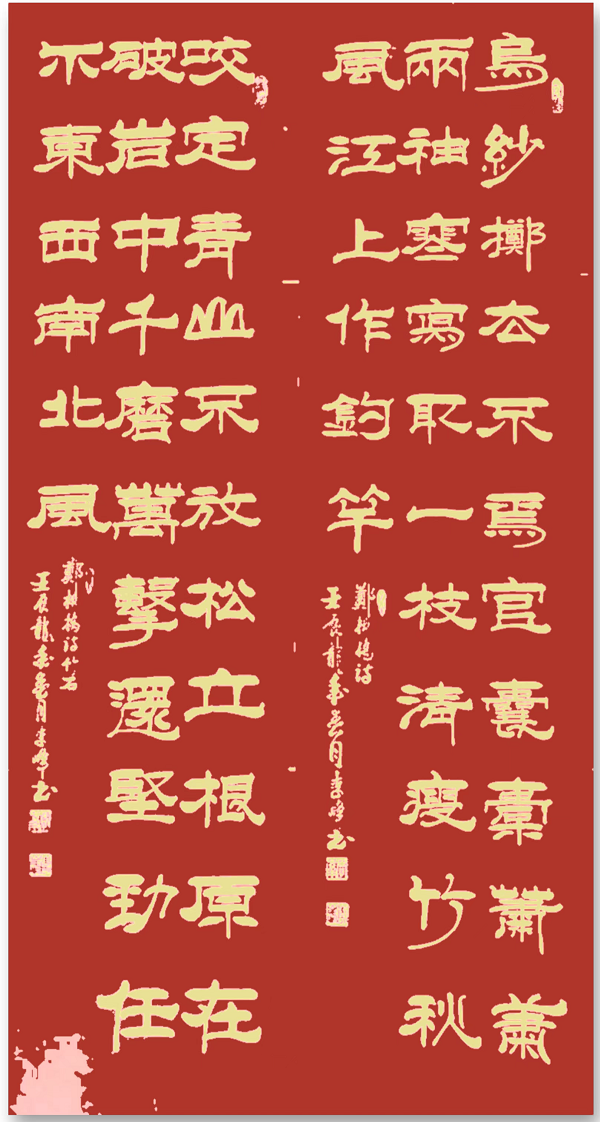 烏紗擲去不為官囊橐蕭蕭
兩袖寒寫取一枝清瘦竹秋
風江上作釣竿
鄭板橋詩
壬辰龍年春月李峰书
咬定青山不放松立根原在
破岩中千磨萬擊還堅勁任
尒東西南北風
鄭板橋詩竹石
壬辰龍年春月李峰书